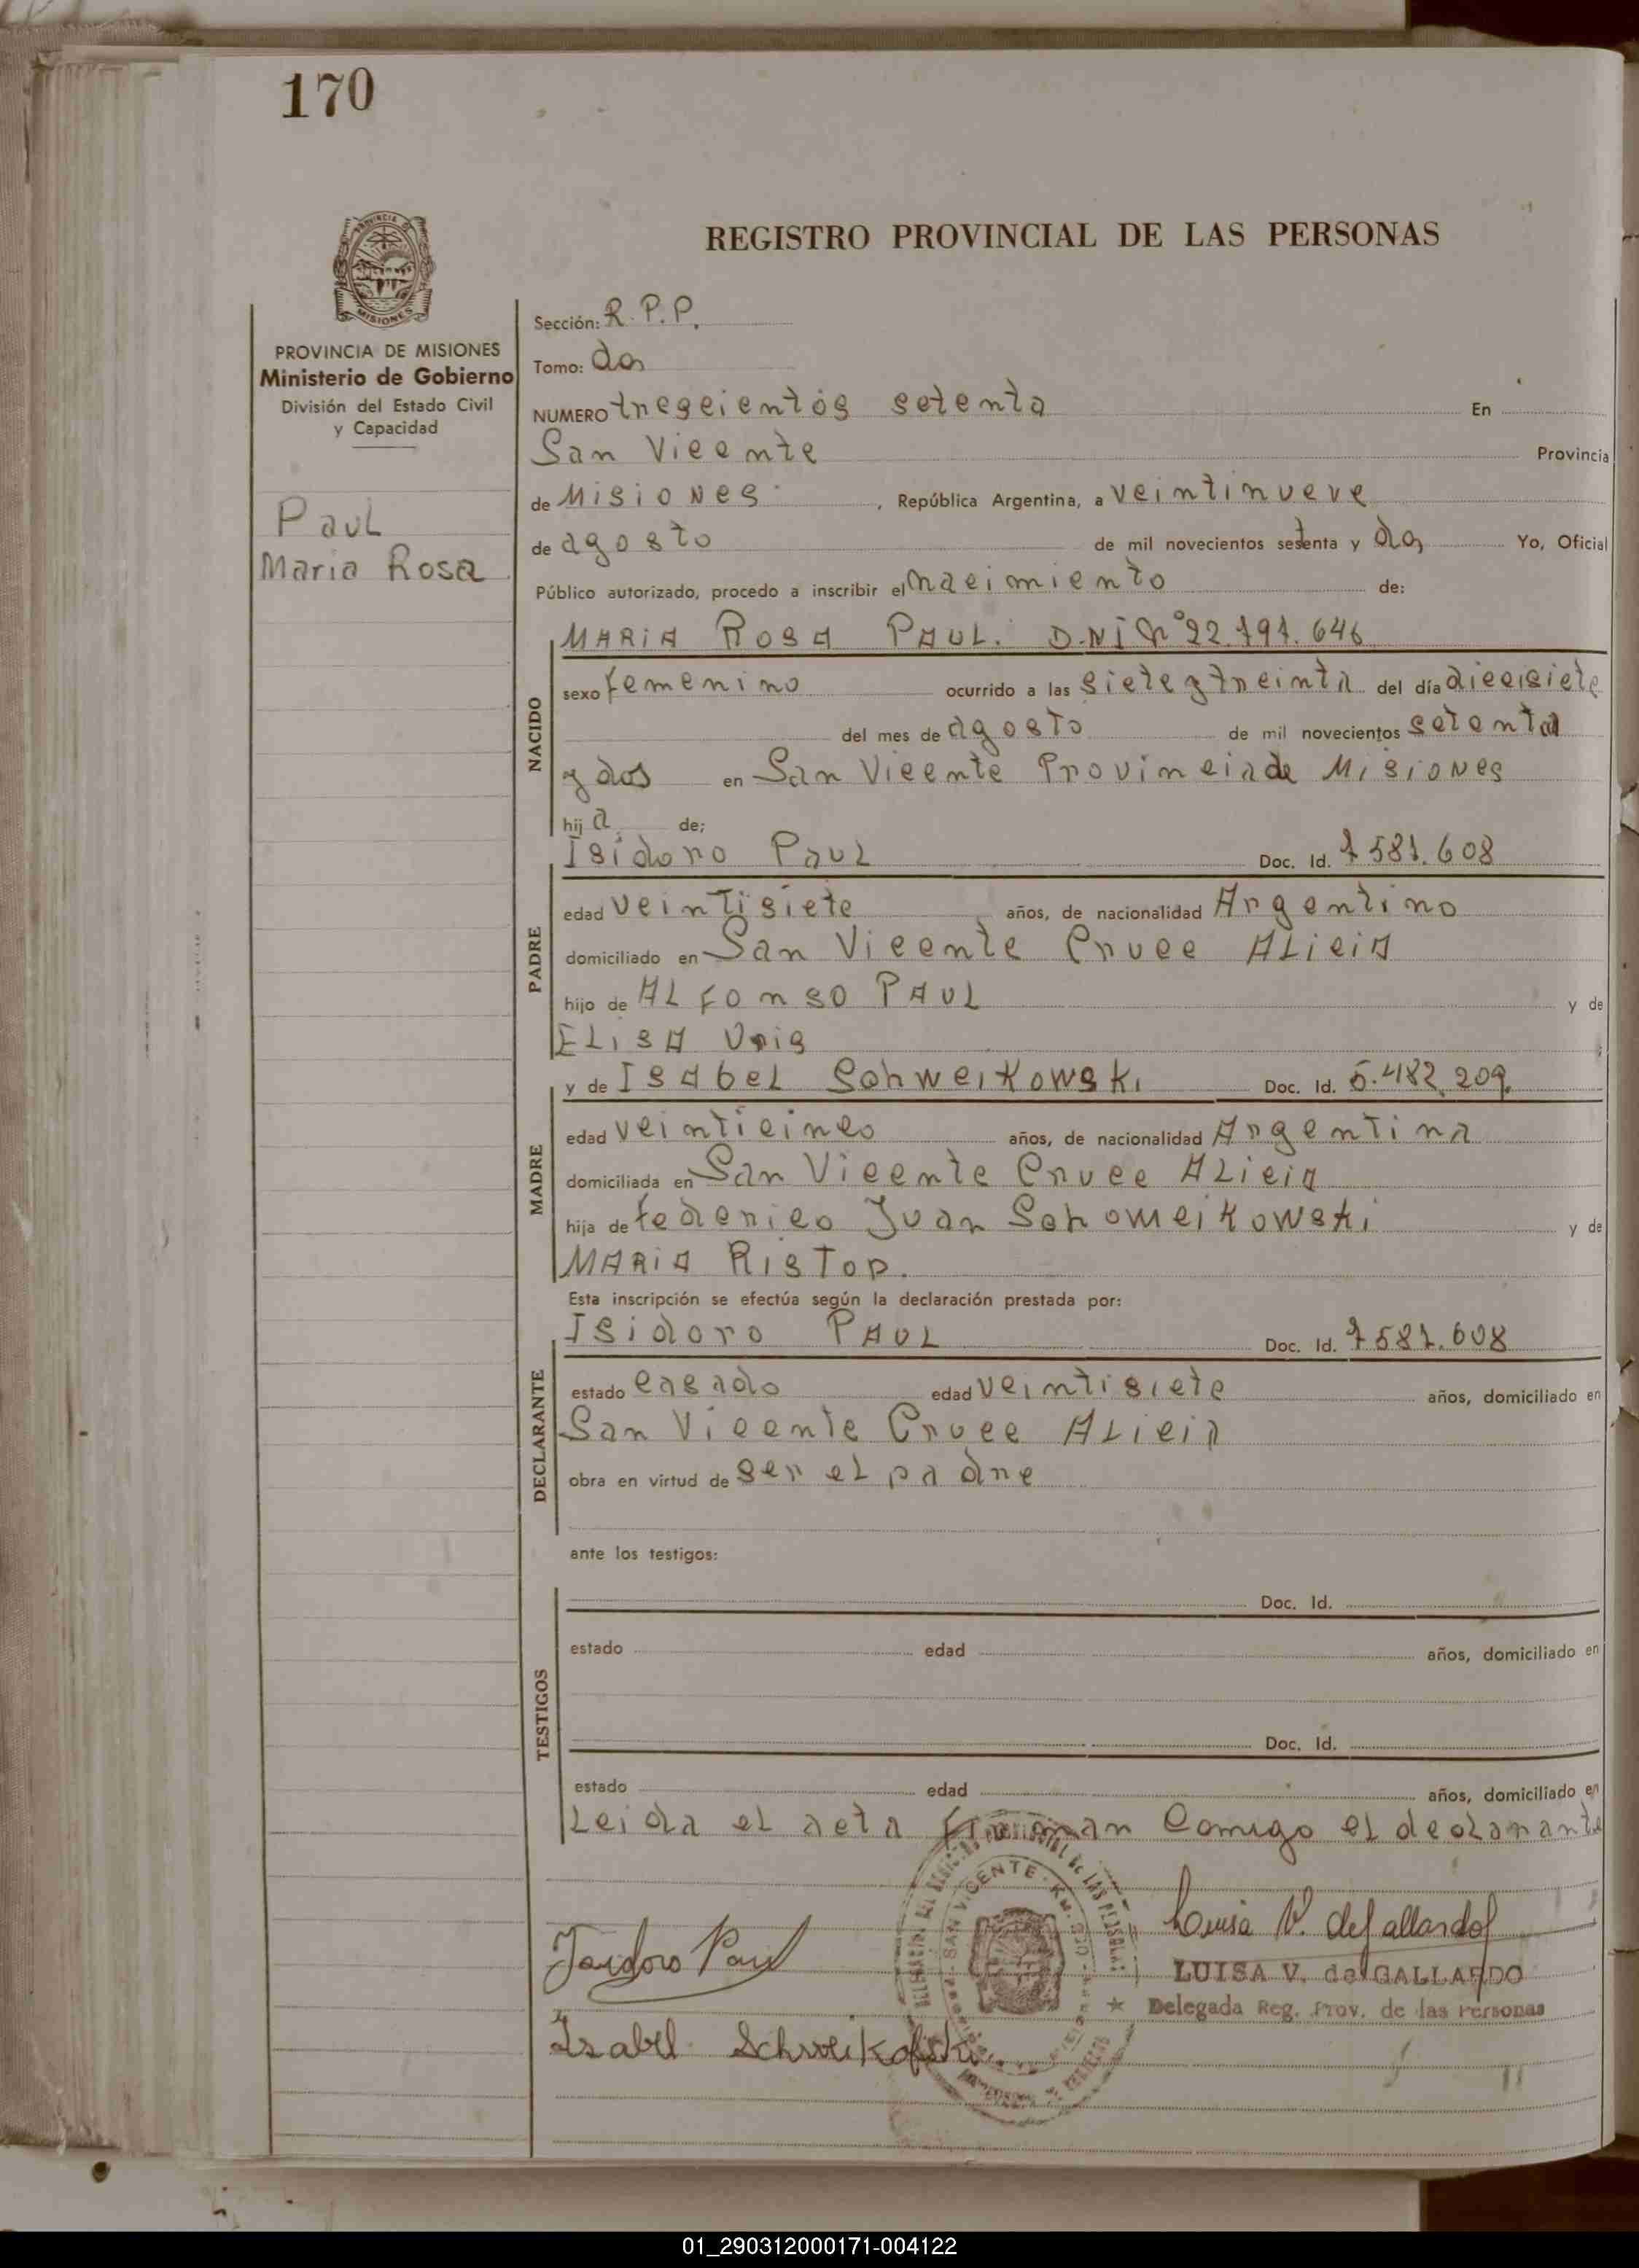 170
REGISTRO PROVINCIAL DE LAS PERSONAS
PROVINCIA DE MISIONES
Ministerio de Gobierno
División del Estado Civil
y Capacidad
Paul
Maria Rosa
Sección: R.P.P.
Tomo: dos
NUMERO trescientos setenta En
San Vicente Provincia
de Misiones, República Argentina, a veintinueve
de agosto de mil novecientos setenta y dos Yo, Oficial
Público autorizado, procedo a inscribir el nacimiento de:
MARIA ROSA PAUL. D.N.I Nº 22.791.646
NACIDO
sexo femenino ocurrido a las siete y treinta del día diecisiete
del mes de agosto de mil novecientos setenta
y dos en San Vicente Provincia de Misiones
hija de;
PADRE
Isidoro Paul Doc. Id. 7581.608
edad veintisiete años, de nacionalidad Argentino
domiciliado en San Vicente Cruce ALicia
hijo de ALFonso PAUL y de
ELisA
MADRE
y de IsAbeL Schweikowski Doc. Id. 5.482.209.
edad veinticinco años, de nacionalidad Argentina
domiciliada en San Vicente Cruce ALicia
hija de federico Juan Schomeikowski y de
MARIA RisTop.
Esta inscripción se efectúa según la declaración prestada por:
DECLARANTE
Isidoro PAUL Doc. Id. 7581.608
estado casado edad veintisiete años, domiciliado en
San Vicente Cruce ALicia
obra en virtud de ser el padre
ante los testigos:
TESTIGOS
Doc. Id.
estado edad años, domiciliado en
Doc. Id.
estado edad años, domiciliado en
Leida el acta firman Comigo el declarante
Isidoro Paul
Luisa V. de Gallardo
LUISA V. de GALLARDO
Delegada Reg. Prov. de las Personas
Isabel Schweikofski
SAN VICENTE
01_290312000171-004122